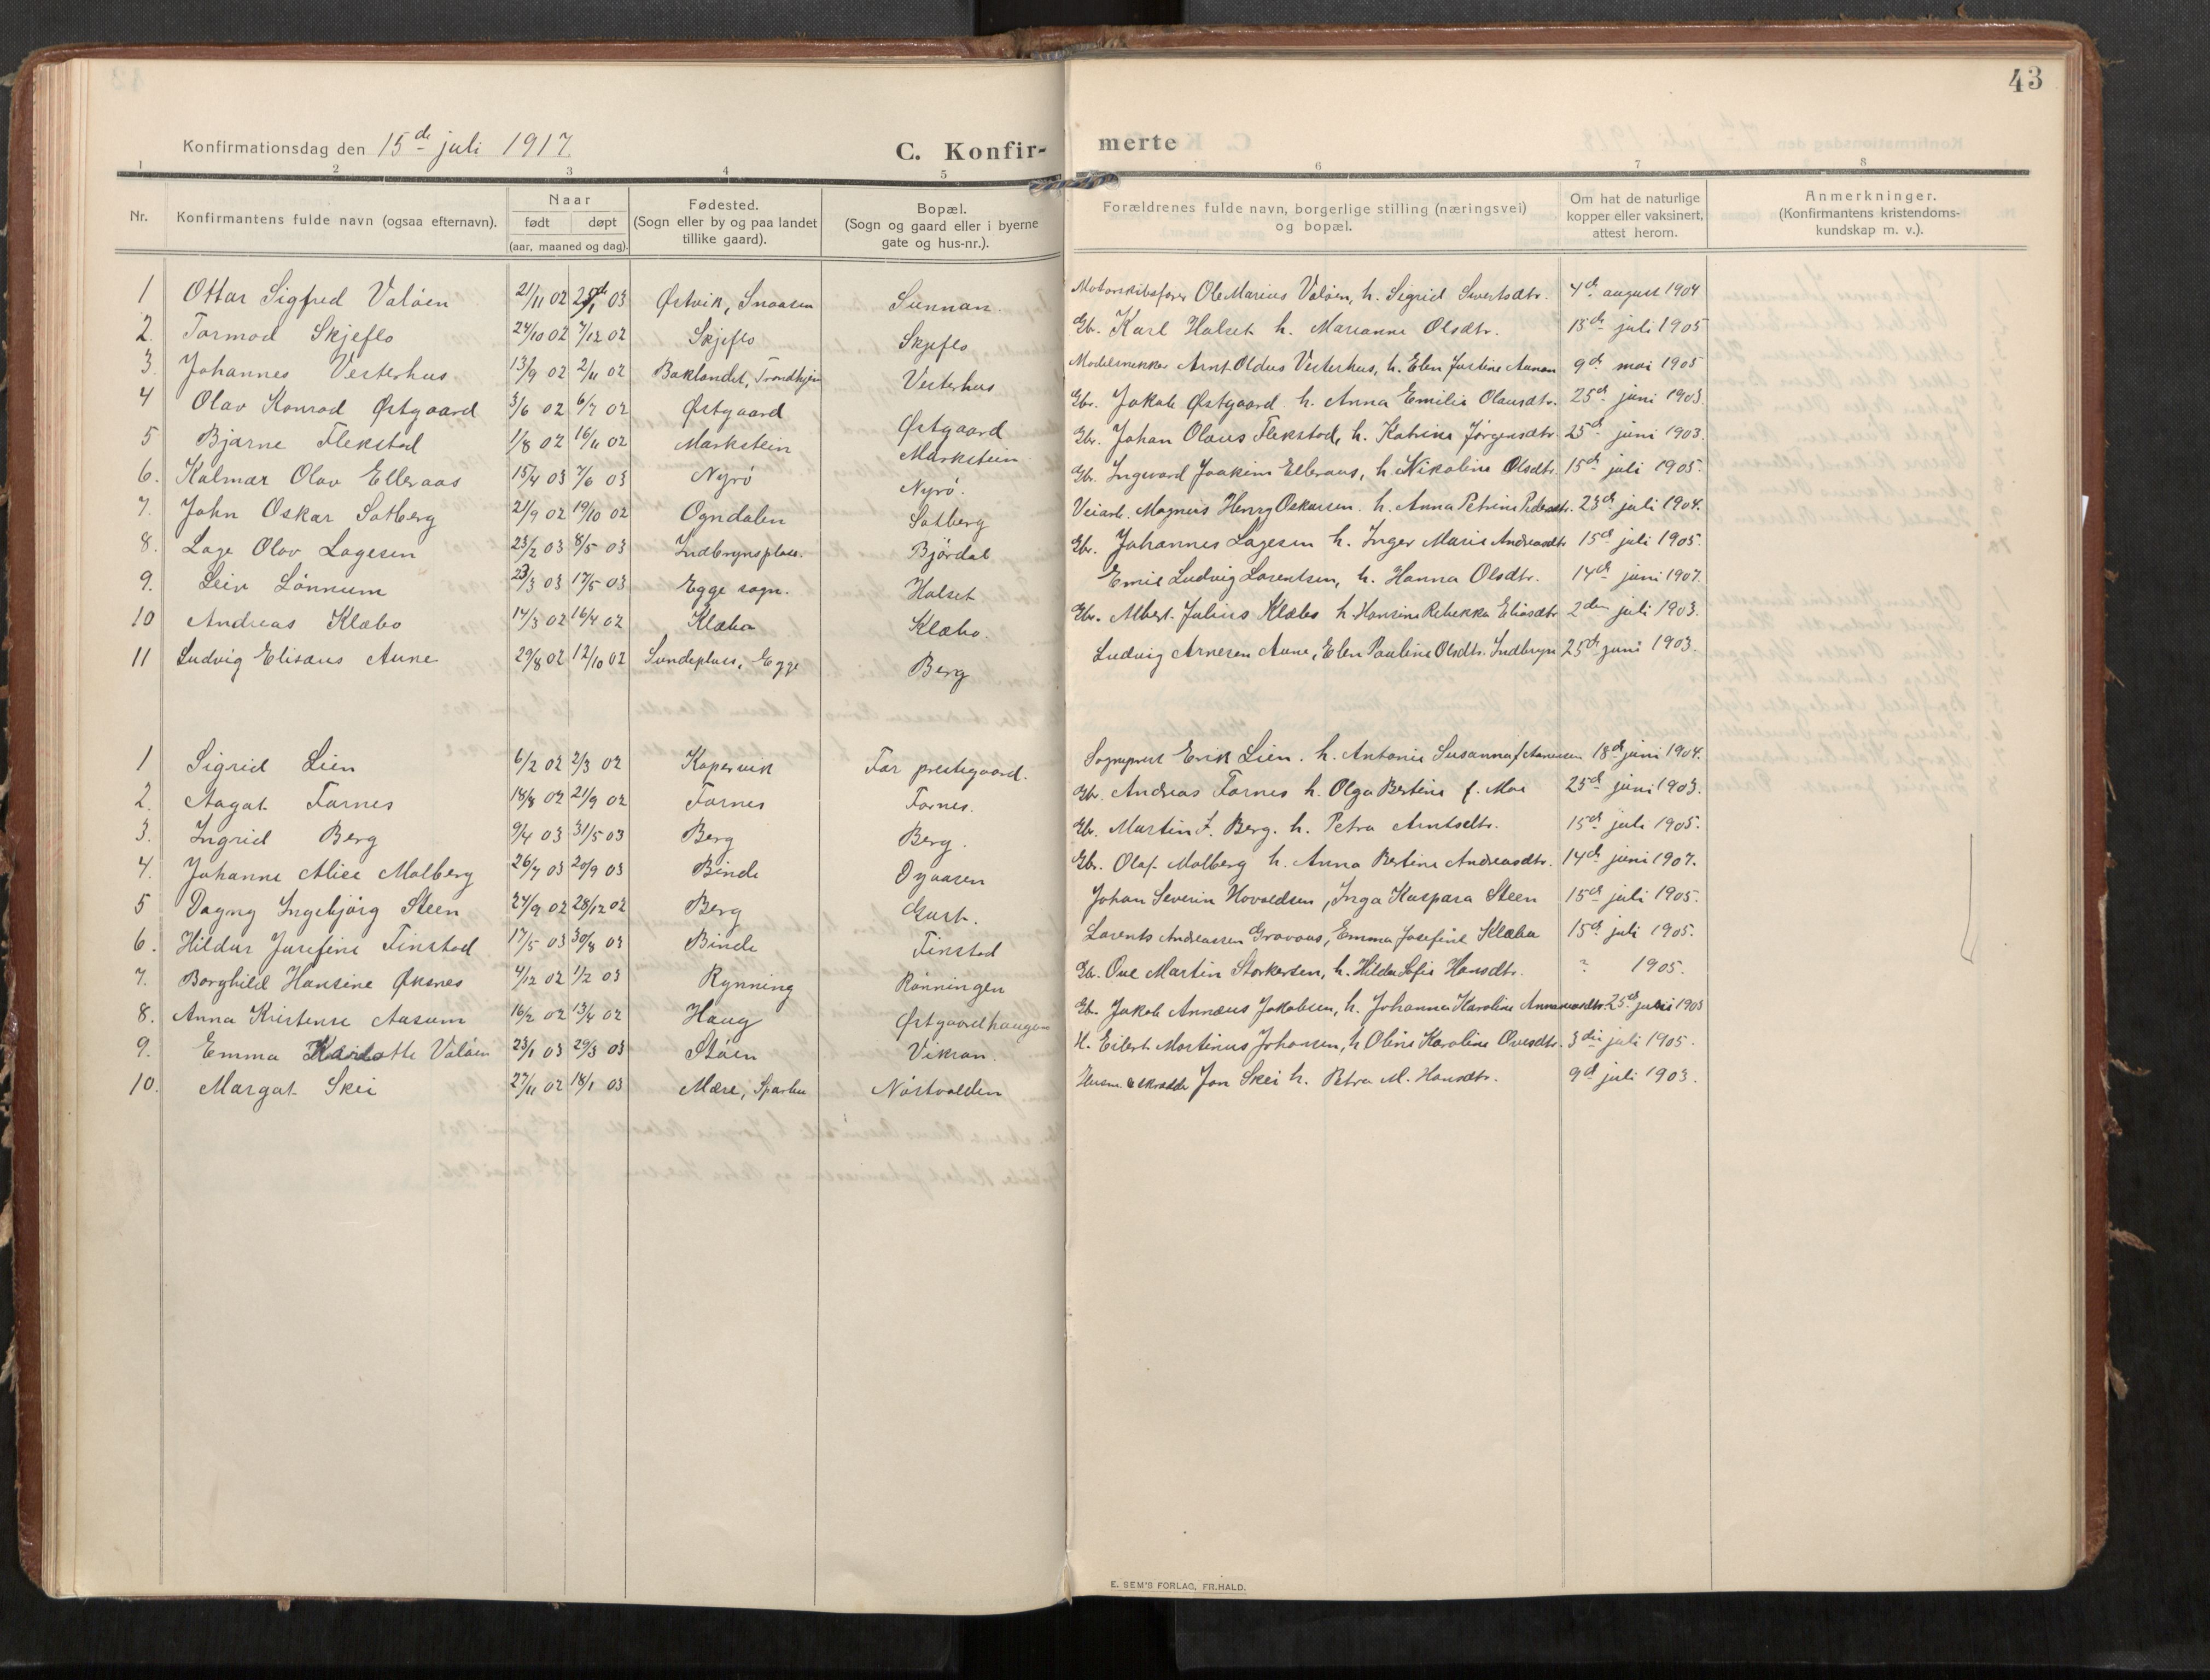 43
Konfirmationsdag den 15de juli 1917.
C. Konfir-merte
1 2 3 4 5 6 7 8
Nr. Konfirmantens fulde navn (ogsaa efternavn). Naar født døpt (aar, maaned og dag). Fødested. (Sogn eller by og paa landet tillike gaard). Bopæl. (Sogn og gaard eller i byerne gate og hus-nr.). Forældrenes fulde navn, borgerlige stilling (næringsvei) og bopæl. Om hat de naturlige kopper eller vaksinert, attest herom. Anmerkninger. (Konfirmantens kristendoms-kundskap m. v.).
1 Ottar Sigfred Valöen 21/11 02 03 Østvik, Snaasen Sunnan. Motorskibsfører Ole Marius Valöen, h. Sigrid Sivertsdtr. 4de august 1904
2. Tormod Skjeflo 24/10 02 7/12 02 Skjeflo Skjeflo Gbr. Karl Halset h. Marianne Olsdtr. 15de juli 1905
3. Johannes Vesterhus 13/9 02 2/11 02 Baklandet, Trondhjem Vesterhus Modelsnekker Arnt Oldus Vesterhus, h. Elen Justine Aunan 9de mai 1905
4 Olav Konrad Østgaard 3/6 02 6/7 02 Østgaard Østgaard Gbr. Jakob Østgaard h. Anna Emilie Olausdtr. 25de juni 1903.
5 Bjarne Flekstad 1/8 02 16/11 02 Markstein Markstein Gbr. Johan Olaus Flekstad, h. Katrine Jørgensdtr. 25de juni 1903.
6. Kalmar Olav Elleraas 15/4 03 7/6 03 Nyrö Nyrö. Gbr. Ingvard Joakim Elleraas, h. Nikoline Olsdtr. 15de juli 1905.
7. John Oskar Satberg 21/9 02 19/10 02 Ogndalen Satberg Veiarb. Magnus Henry Oskarsen. h. Anna Petrine Pedersdtr. 23de juli 1904.
8. Lage Olav Lagesen 23/2 03 8/5 03 Indbrynsplass. Bjørdal Gbr. Johannes Lagesen h. Inger Marie Andreasdtr 15de juli 1905.
9. Leiv Lönnum 23/3 03 17/5 03 Egge sogn. Halset Emil Ludvig Lorentsen, h. Hanna Olsdtr. 14de juni 1907.
10 Andreas Klæbo 14/3 02 16/4 02 Klæbo Klæbo. Gbr. Albert Julius Klæbo h. Hansine Rebekka Eliasdtr 2den juli 1903.
11 Ludvig Elisæus Aune 29/8 02 12/10 02 Sundeplass, Egge Berg Ludvig Arnesen Aune, Elen Pauline Olsdtr. Indbryn 25de juni 1903.
1 Sigrid Lien 6/2 02 2/3 02 Kopervik For prestegaard. Sogneprest Erik Lien. h. Antonie Susanna 18de juni 1904.
2. Aagot Fornes 18/8 02 21/9 02 Fornes Fornes. Gbr. Andreas Fornes h. Olga Bertine f. Moe 25de juni 1903.
3. Ingrid Berg 9/4 03 31/5 03 Berg Berg. Gbr. Martin J. Berg. h. Petra Arntsdtr. 15de juli 1905.
4. Johanne Alice Malberg 26/7 03 20/9 03 Binde Oyaasen Gbr. Olaf Malberg h. Anna Bertine Andreasdtr. 14de juni 1907.
5 Dagny Ingebjörg Steen 24/9 02 28/12 02 Berg Johan Severin Hovaldsen, Inga Kaspara Steen 15de juli 1905.
6. Hildur Josefine Finstad 17/5 03 30/8 03 Binde Finstad Lorents Andreassen Gravaas, Emma Josefine Klæbu 15de juli 1905.
7. Borghild Hansine Øksnes 4/12 02 1/2 03 Rynning Rönningen Gbr. Ove Martin Storkersen, h. Hilda Sofie Hansdtr. ? 1905.
8. Anna Kristense Aasum 16/2 02 13/4 02 Haug Østgaardhaugen Gbr. Jakob Annæus Jakobsen, h. Johanna Karoline 25de juni 1903
9. Emma Karlotte Valöen 23/1 03 29/3 03 Støen Vikran. H. Eilert Martinus Johansen, h. Oline Karoline Ovesdtr. 3die juli 1905.
10. Margat Skei 27/11 02 18/1 03 Mære, Sparbu Nöstvolden Husm. & skrædder Jon Skei h. Petra M. Hansdtr. 9de juli 1903.
E. SEM'S FORLAG, FR.HALD.